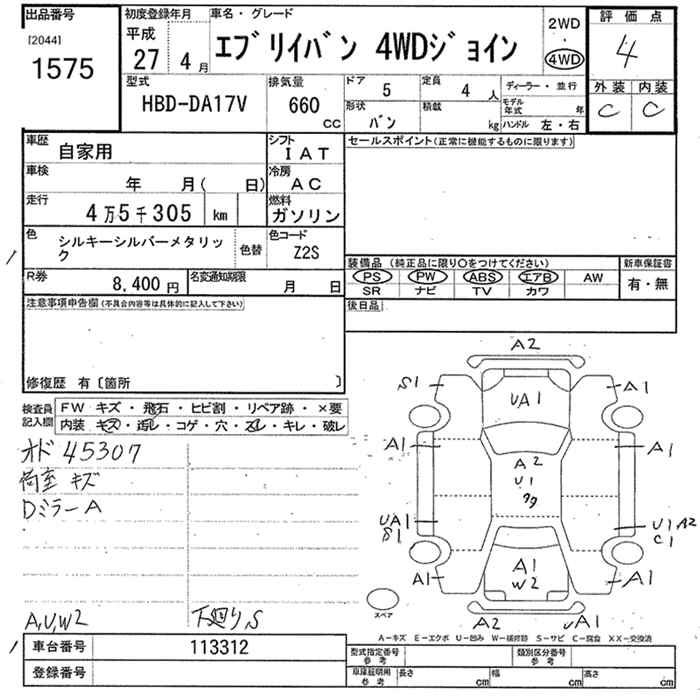 出品番号
[2044]
1575
初度登録年月
平成
27 4 月
車名・グレード
エブリイバン 4WDジョイン
2WD
・
4WD
評価点
4
外装 内装
C C
型式
HBD-DA17V
排気量
660
cc
ドア
5
定員
4 人
形状
バン
積載
kg
ディーラー・並行
モデル年式 年
ハンドル 左・右
車歴
自家用
シフト
IAT
車検
年 月( 日)
冷房
AC
走行
4万5千305 km
燃料
ガソリン
色
シルキーシルバーメタリック
色替
色コード
Z2S
R券
8,400 円
名変通知期限
月 日
セールスポイント(正常に機能するものに限ります)
装備品 (純正品に限り○をつけてください)
PS PW ABS エアB AW
SR ナビ TV カワ
新車保証書
有・無
後日品
注意事項申告欄(不具合内容等は具体的に記入して下さい)
修復歴 有〔箇所 〕
検査員記入欄
FW キズ・飛石・ヒビ割・リペア跡・×要
内装 キズ・汚レ・コゲ・穴・スレ・キレ・破レ
オド 45307
荷室 キズ
Dミラー A
A,U,W2
下廻り,S
A2
S1
A1
UA1
A1
A1
A2
U1
UA1
S1
U1 A2
C1
A1
A1
W2
A1
A2
UA1
スペア
A－キズ E－エクボ U－凹み W－補修跡 S－サビ C－腐食 XX－交換済
車台番号
113312
登録番号
型式指定番号
参考
類別区分番号
参考
車庫証明用
参考
長さ cm
幅 cm
高さ cm